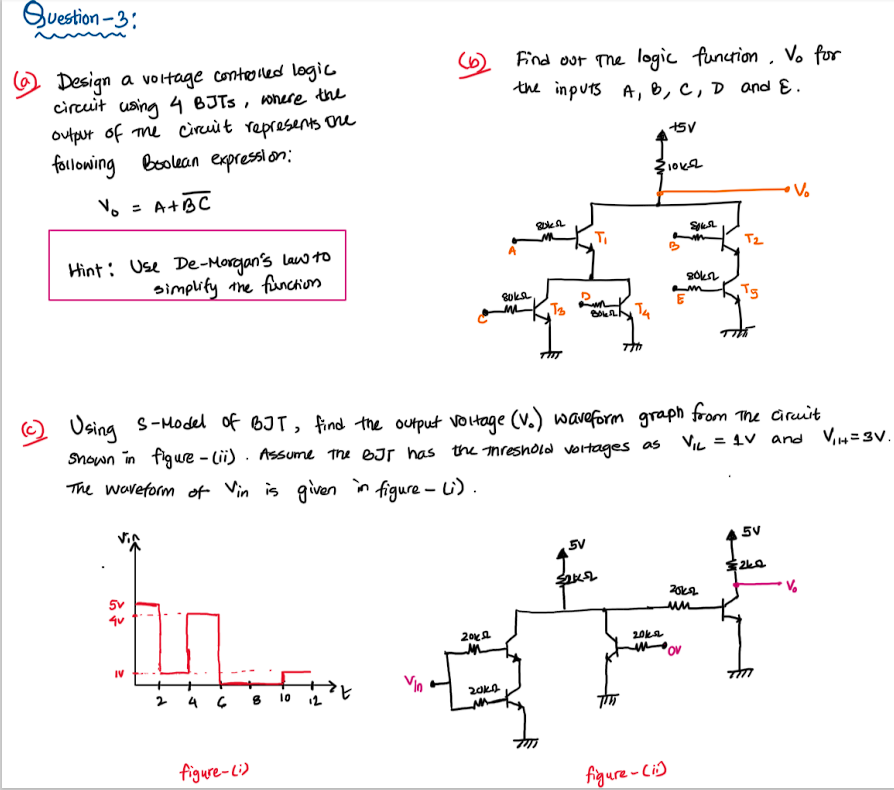 Question-3:
(a) Design a voltage controlled logic
circuit using 4 BJTs, where the
output of the circuit represents the
following Boolean expression:
V₀ = A+B̅C̅
Hint: Use De-Morgan's law to
simplify the function
(b) Find out the logic function, V₀ for
the inputs A, B, C, D and E.
+5V
10kΩ
V₀
80kΩ
A
T₁
80kΩ
B
T₂
80kΩ
C
T₃
D
80kΩ
T₄
80kΩ
E
T5
(c) Using S-Model of BJT, find the output voltage (V₀) waveform graph from the circuit
shown in figure-(ii). Assume the BJT has the threshold voltages as V_IL = 1V and V_IH = 3V.
The waveform of Vin is given in figure-(i).
Vin
5V
4V
1V
2 4 6 8 10 12 t
figure-(i)
5V
20kΩ
Vin
20kΩ
20kΩ
0V
20kΩ
5V
2kΩ
V₀
figure-(ii)